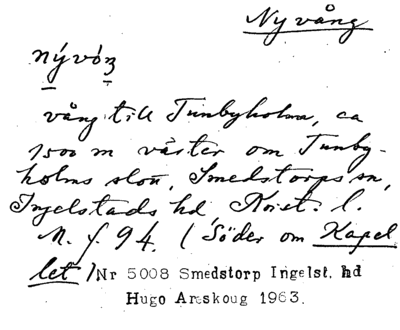 Nyvång
nývóꜧ
vång till Tunbyholm, ca
1500 m väster om Tunby-
holms slott, Smedstorps sn,
Ingelstads hd, Krist. l.
M. f. 94. (Söder om Kapel
let) Nr 5008 Smedstorp Ingelst. hd
Hugo Areskoug 1963.